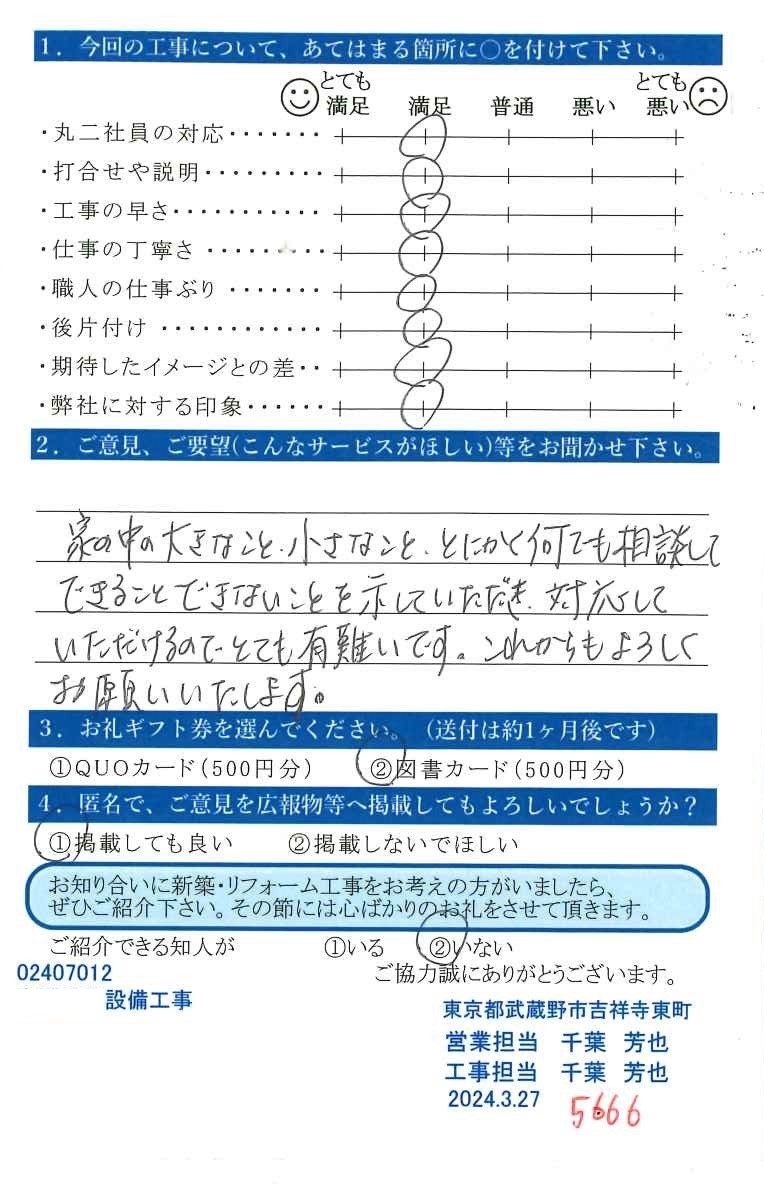 1．今回の工事について、あてはまる箇所に○を付けて下さい。
とても満足 満足 普通 悪い とても悪い
・丸二社員の対応・・・・・・・
・打合せや説明・・・・・・・・・
・工事の早さ・・・・・・・・・・・
・仕事の丁寧さ ・・・・・・・・・
・職人の仕事ぶり ・・・・・・・
・後片付け ・・・・・・・・・・・・
・期待したイメージとの差・・
・弊社に対する印象・・・・・・
2．ご意見、ご要望(こんなサービスがほしい)等をお聞かせ下さい。
家の中の大きなこと、小さなこと、とにかく何でも相談して
できることできないことを示していただき、対応して
いただけるのでとても有難いです。これからもよろしく
お願いいたします。
3．お礼ギフト券を選んでください。（送付は約1ヶ月後です）
①QUOカード（500円分） ②図書カード（500円分）
4．匿名で、ご意見を広報物等へ掲載してもよろしいでしょうか？
①掲載しても良い ②掲載しないでほしい
お知り合いに新築・リフォーム工事をお考えの方がいましたら、
ぜひご紹介下さい。その節には心ばかりのお礼をさせて頂きます。
ご紹介できる知人が ①いる ②いない
02407012 ご協力誠にありがとうございます。
設備工事
東京都武蔵野市吉祥寺東町
営業担当 千葉 芳也
工事担当 千葉 芳也
2024.3.27
5666